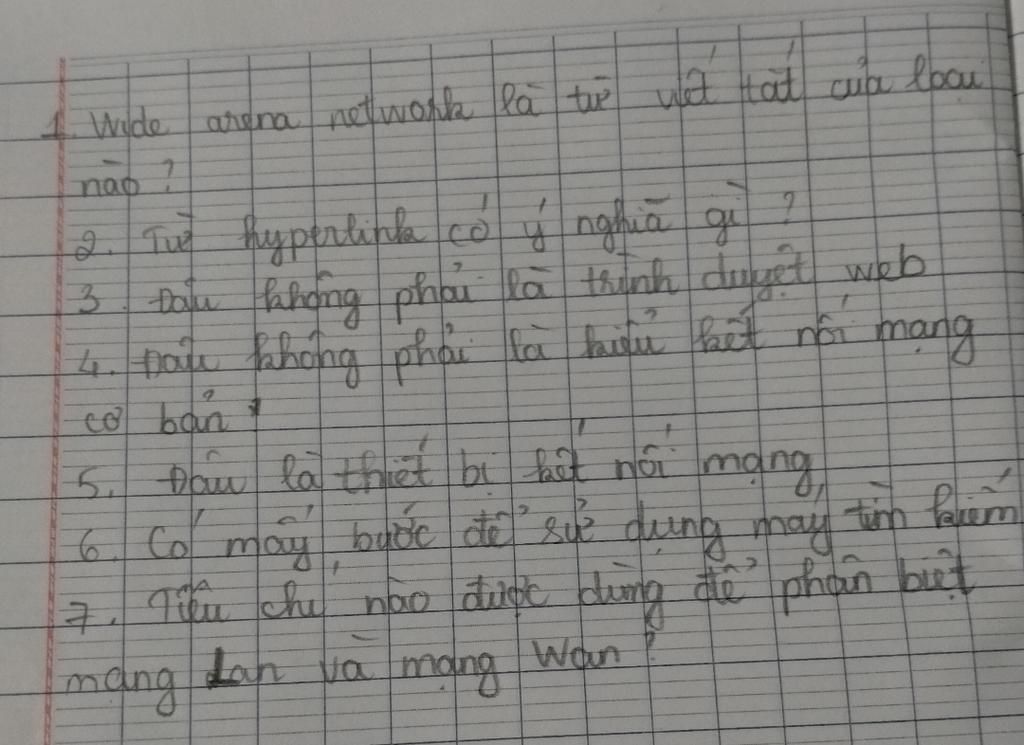 1. Wide arena network là từ viết tắt của loại
nào?
2. Từ hyperlink có ý nghĩa gì?
3. Đâu không phải là trình duyệt web
4. Đâu không phải là kiểu kết nối mạng
cơ bản?
5. Đâu là thiết bị kết nối mạng
6. Có mấy bước để sử dụng máy tìm kiếm
7. Tiêu chí nào được dùng để phân biệt
mạng Lan và mạng Wan?